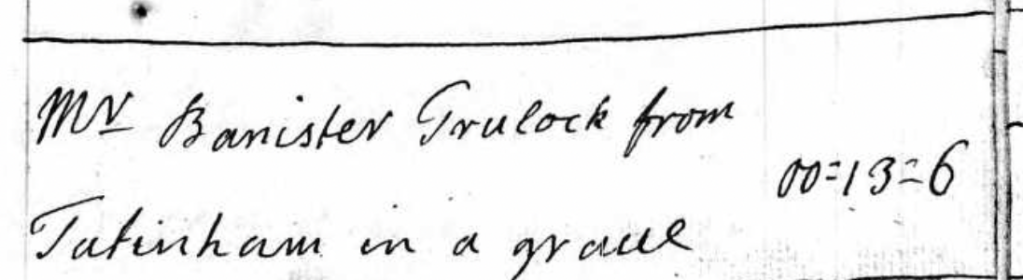 Mr Banister Trulock from
00=13=6
Tatinham in a graue